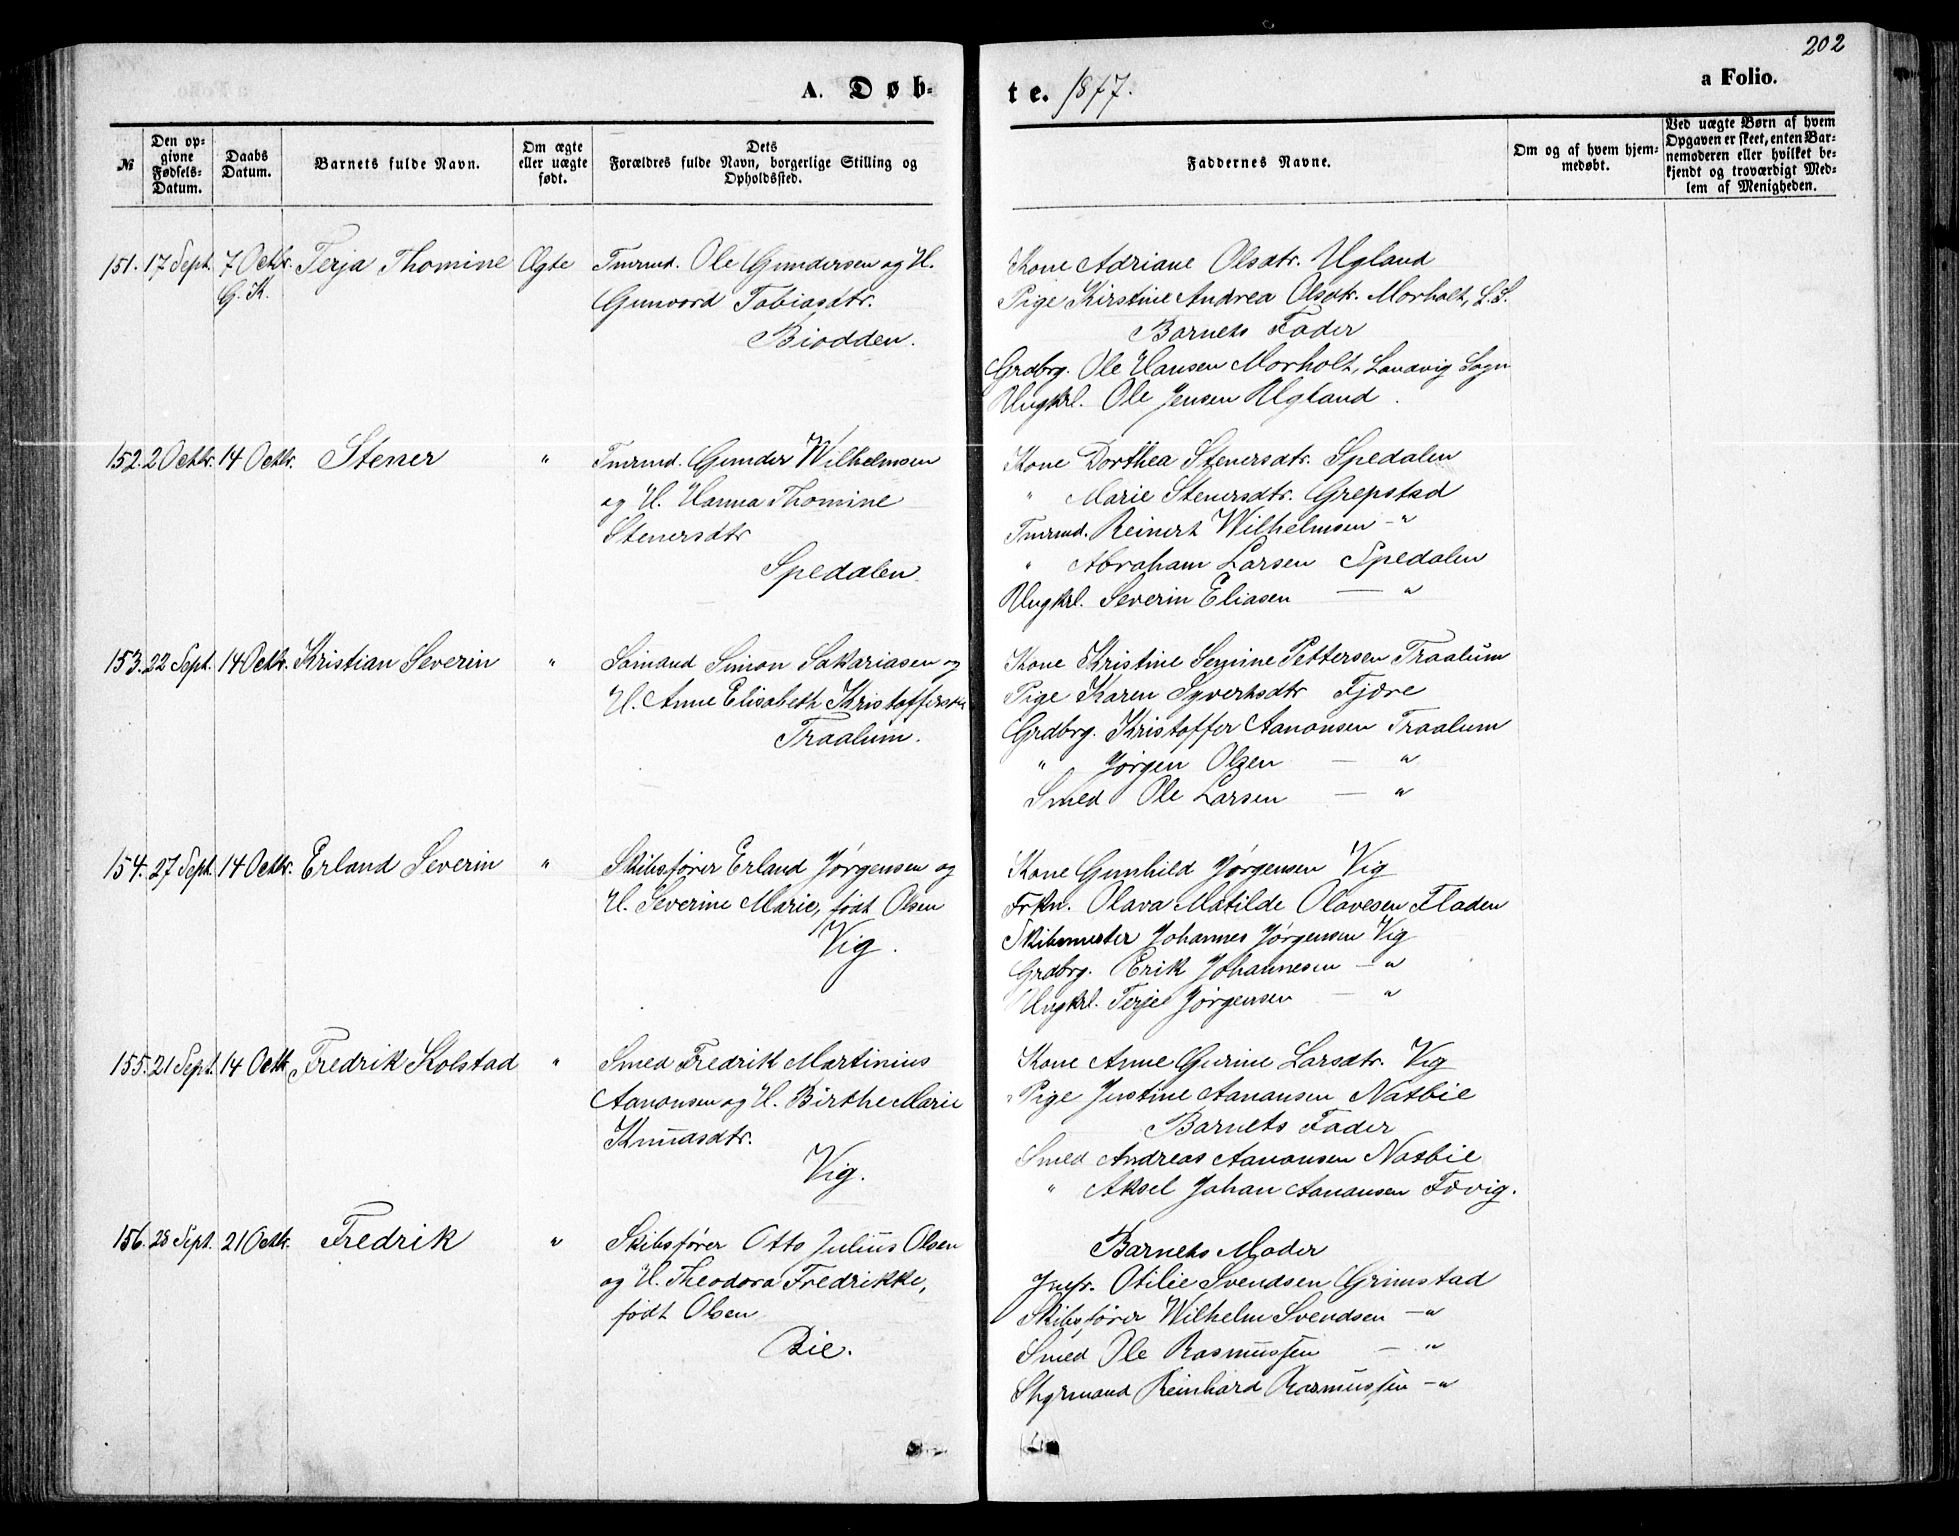 202
A. Døb-
te. 1877.
a Folio.
№
Den op-
givne
Fødsels-
Datum.
Daabs
Datum.
Barnets fulde Navn.
Om ægte
eller uægte
født.
Dets
Forældres fulde Navn, borgerlige Stilling og
Opholdssted.
Faddernes Navne.
Om og af hvem hjem-
medøbt.
Ved uægte Børn af hvem
Opgaven er skeet, enten Bar-
nemoderen eller hvilket be-
kjendt og troværdigt Med-
lem af Menigheden.
151. 17 Sept. 7 Octbr. Terja Thomine Ægte Tmrmd. Ole Gundersen og H.
G. K. Gunvord Tobiasdtr.
Biodden.
Kone Adriane Olsdtr. Ugland
Pige Kirstine Andrea Olsdtr. Morholt, L. S.
Barnets Fader
Grdbrg. Ole Hansen Morholt, Landvig Sogn
Ungkrl. Ole Jensen Ugland.
152. 2 Octbr. 14 Octbr. Stener " Tmrmd. Gunder Wilhelmsen
og H. Hanna Thomine
Stenersdtr
Spedalen.
Kone Dorthea Stenersdtr. Spedalen
" Marie Stenersdtr. Grepstad
Tmrmd. Reinert Wilhelmsen — "
" Abraham Larsen Spedalen
Ungkrl. Severin Eliasen — "
153. 22 Sept. 14 Octbr. Kristian Severin " Sømand Simon Sakariasen og
H. Anne Elisabeth Kristoffersdtr
Traalum.
Kone Kristine Semine Pettersen Traalum
Pige Karen Syvertsdtr Fjære
Grdbrg. Kristoffer Aanonsen Traalum
" Jørgen Olsen — "
Smed Ole Larsen — "
154. 27 Sept. 14 Octbr. Erland Severin " Skibsfører Erland Jørgensen og
H. Severine Marie, født Olsen
Vig.
Kone Gunhild Jørgensen Vig
Frkn. Olava Matilde Olavesen Fladen
Skibsmester Johannes Jørgensen Vig
Grdbrg. Erik Johannesen — "
Ungkrl. Terje Jørgensen — "
155. 21 Sept. 14 Octb. Fredrik Kolstad " Smed Fredrik Martinius
Aanonsen og H. Birthe Marie
Knudsdtr.
Vig.
Kone Anne Gurine Larsdtr. Vig
Pige Justine Aanonsen Natbie
Barnets Fader
Smed Andreas Aanonsen Natbie
" Aksel Johan Aanonsen Fevig.
156. 28 Sept. 21 Octbr. Fredrik " Skibsfører Otto Julius Olsen
og H. Theodora Fredrikke,
født Olsen
Bie.
Barnets Moder
Jmfr. Otilie Svendsen Grimstad
Skibsfører Wilhelm Svendsen — "
Smed Ole Rasmussen — "
Styrmand Reinhard Rasmussen — "